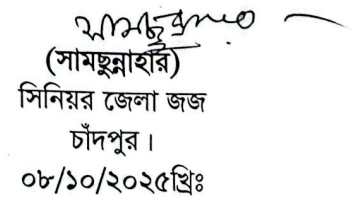 (সামছুন্নাহার)
সিনিয়র জেলা জজ
চাঁদপুর।
০৮/১০/২০২৫খ্রিঃ